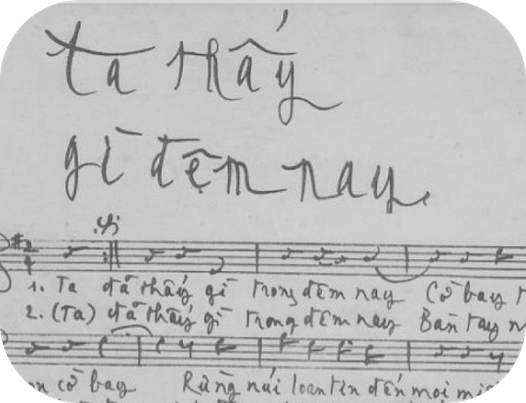 Ta thấy
gì đêm nay.
1. Ta đã thấy gì trong đêm nay Cờ bay
2. (Ta) đã thấy gì trong đêm nay Bàn tay
cờ bay Rừng núi loan tin đến mọi